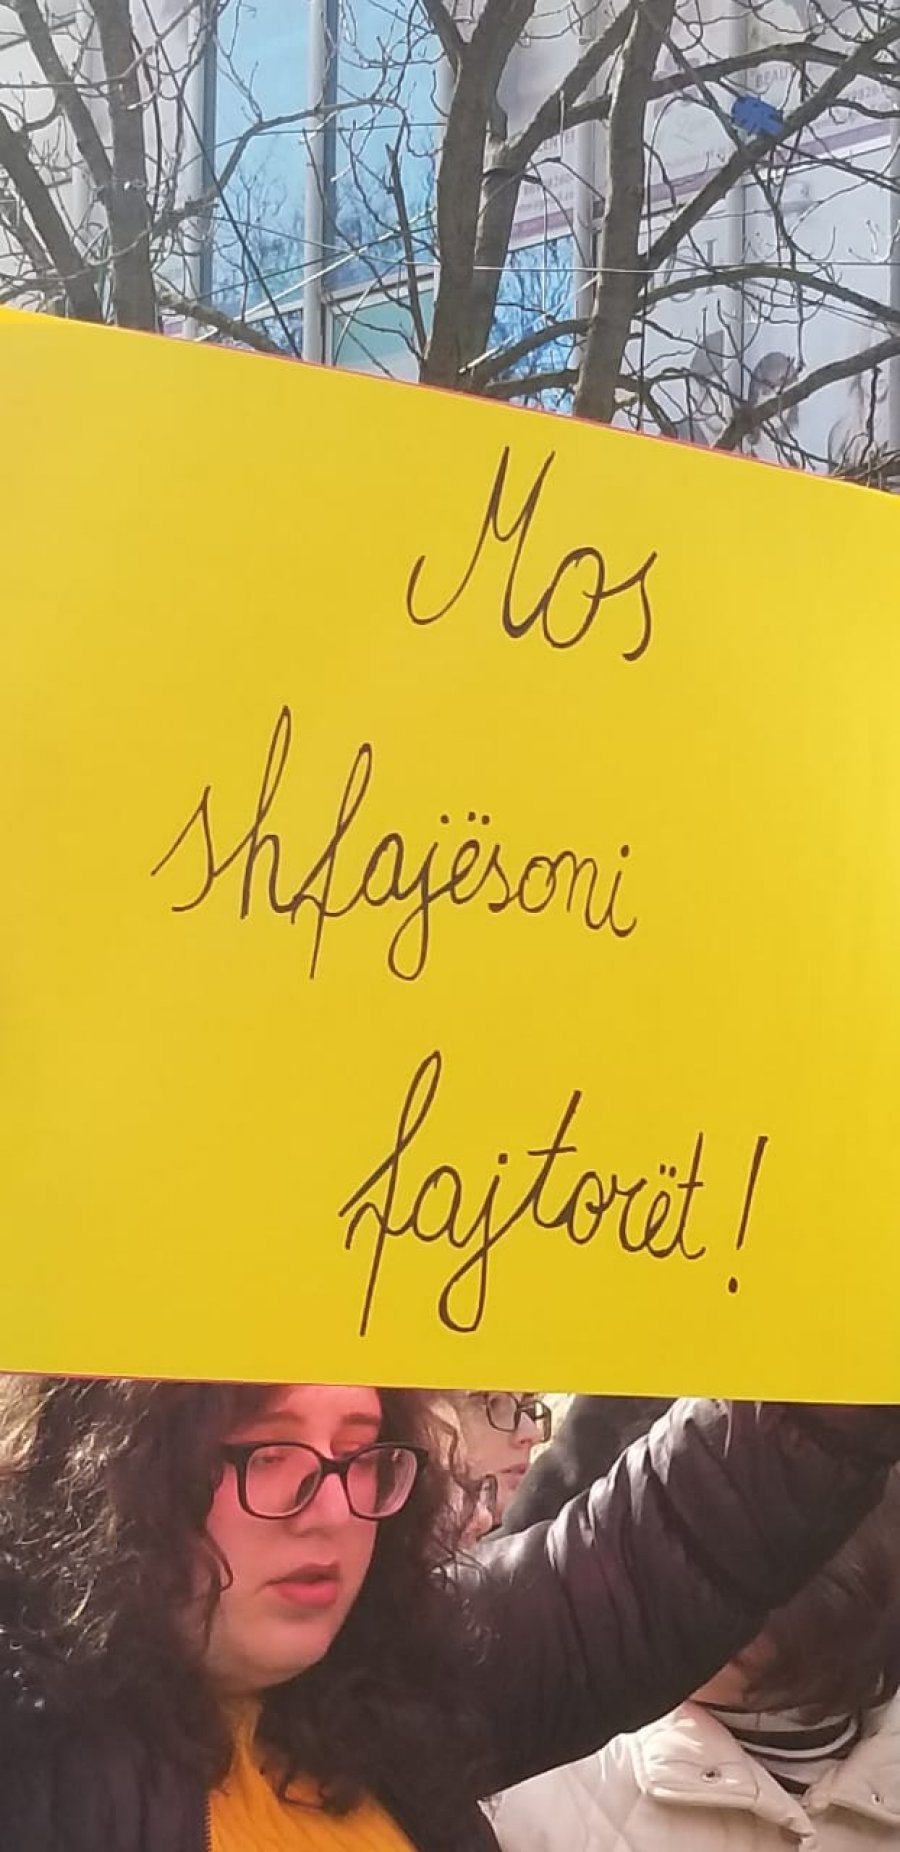 Mos
shfajësoni
fajtorët!